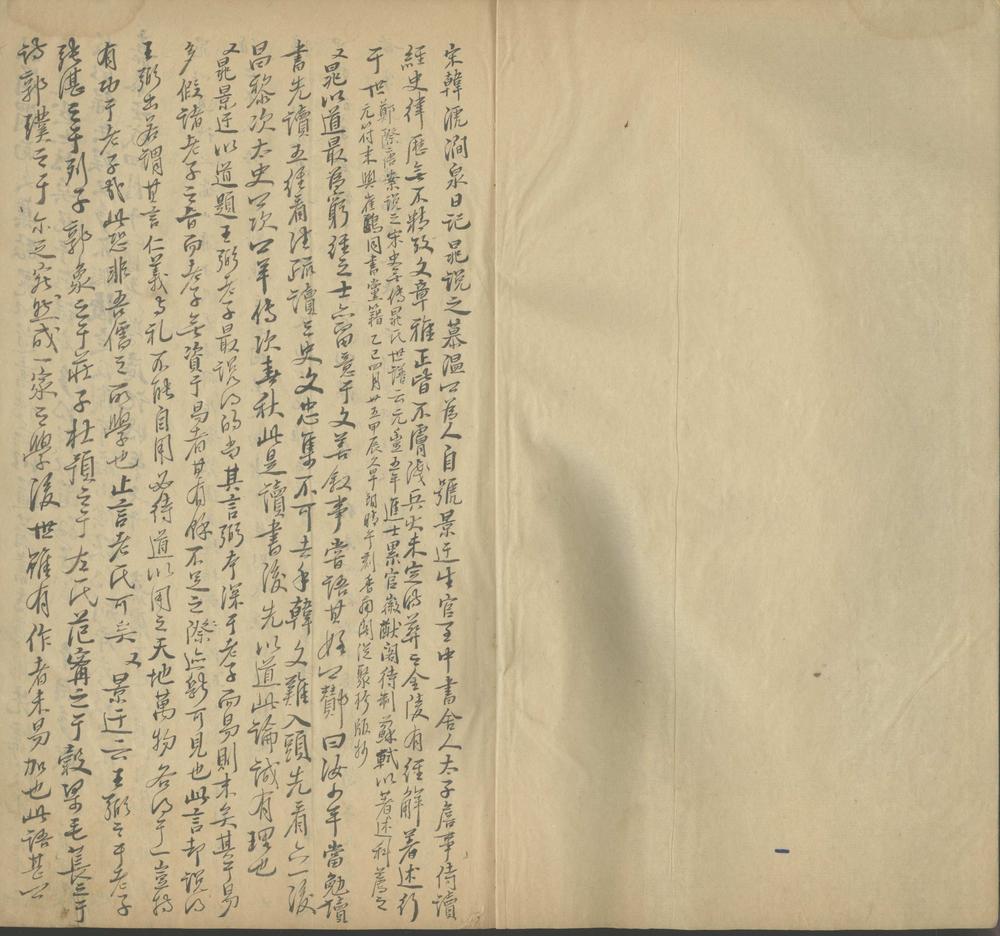 宋韓淲澗泉日記晁說之慕温公爲人自號景迂生官至中書舍人太子詹事侍讀
經史律歷無不精致文章雅正皆不膚淺兵火未定時葬之金陵有經解著述行
于世鄭際唐案說之宋史無傳晁氏世譜云元豐五年進士累官徽猷閣待制蘇軾以著述科薦之
元符末與崔鶠同書黨籍乙巳四月廿五甲辰久旱朝晴午刻香雨閣從聚珍版抄
又晁以道最爲窮經之士亦留意于文善叙事嘗語其姪公鄩曰汝少年當勉讀
書先讀五經看注疏讀三史文忠集不可去手韓文難入頭先看六一後
昌黎次太史公次公羊傳次春秋此是讀書後先以道此論誠有理也
又晁景迂以道題王弼老子最說得的當其言弼本深于老子而易則末矣其于易
多假諸老子之旨而老子無資于易者其有餘不足之際迹斷可見也此言却說得
王弼出若謂其言仁義與礼不能自用必待道以用之天地萬物各得于一豈特
有功于老子哉此恐非吾儒之所學也止言老氏可矣又景迂云王弼之于老子
張湛之于列子郭象之于莊子杜預之于左氏范甯之于穀梁毛萇之于
詩郭璞之于尔疋完然成一家之學後世雖有作者未易加也此語甚公